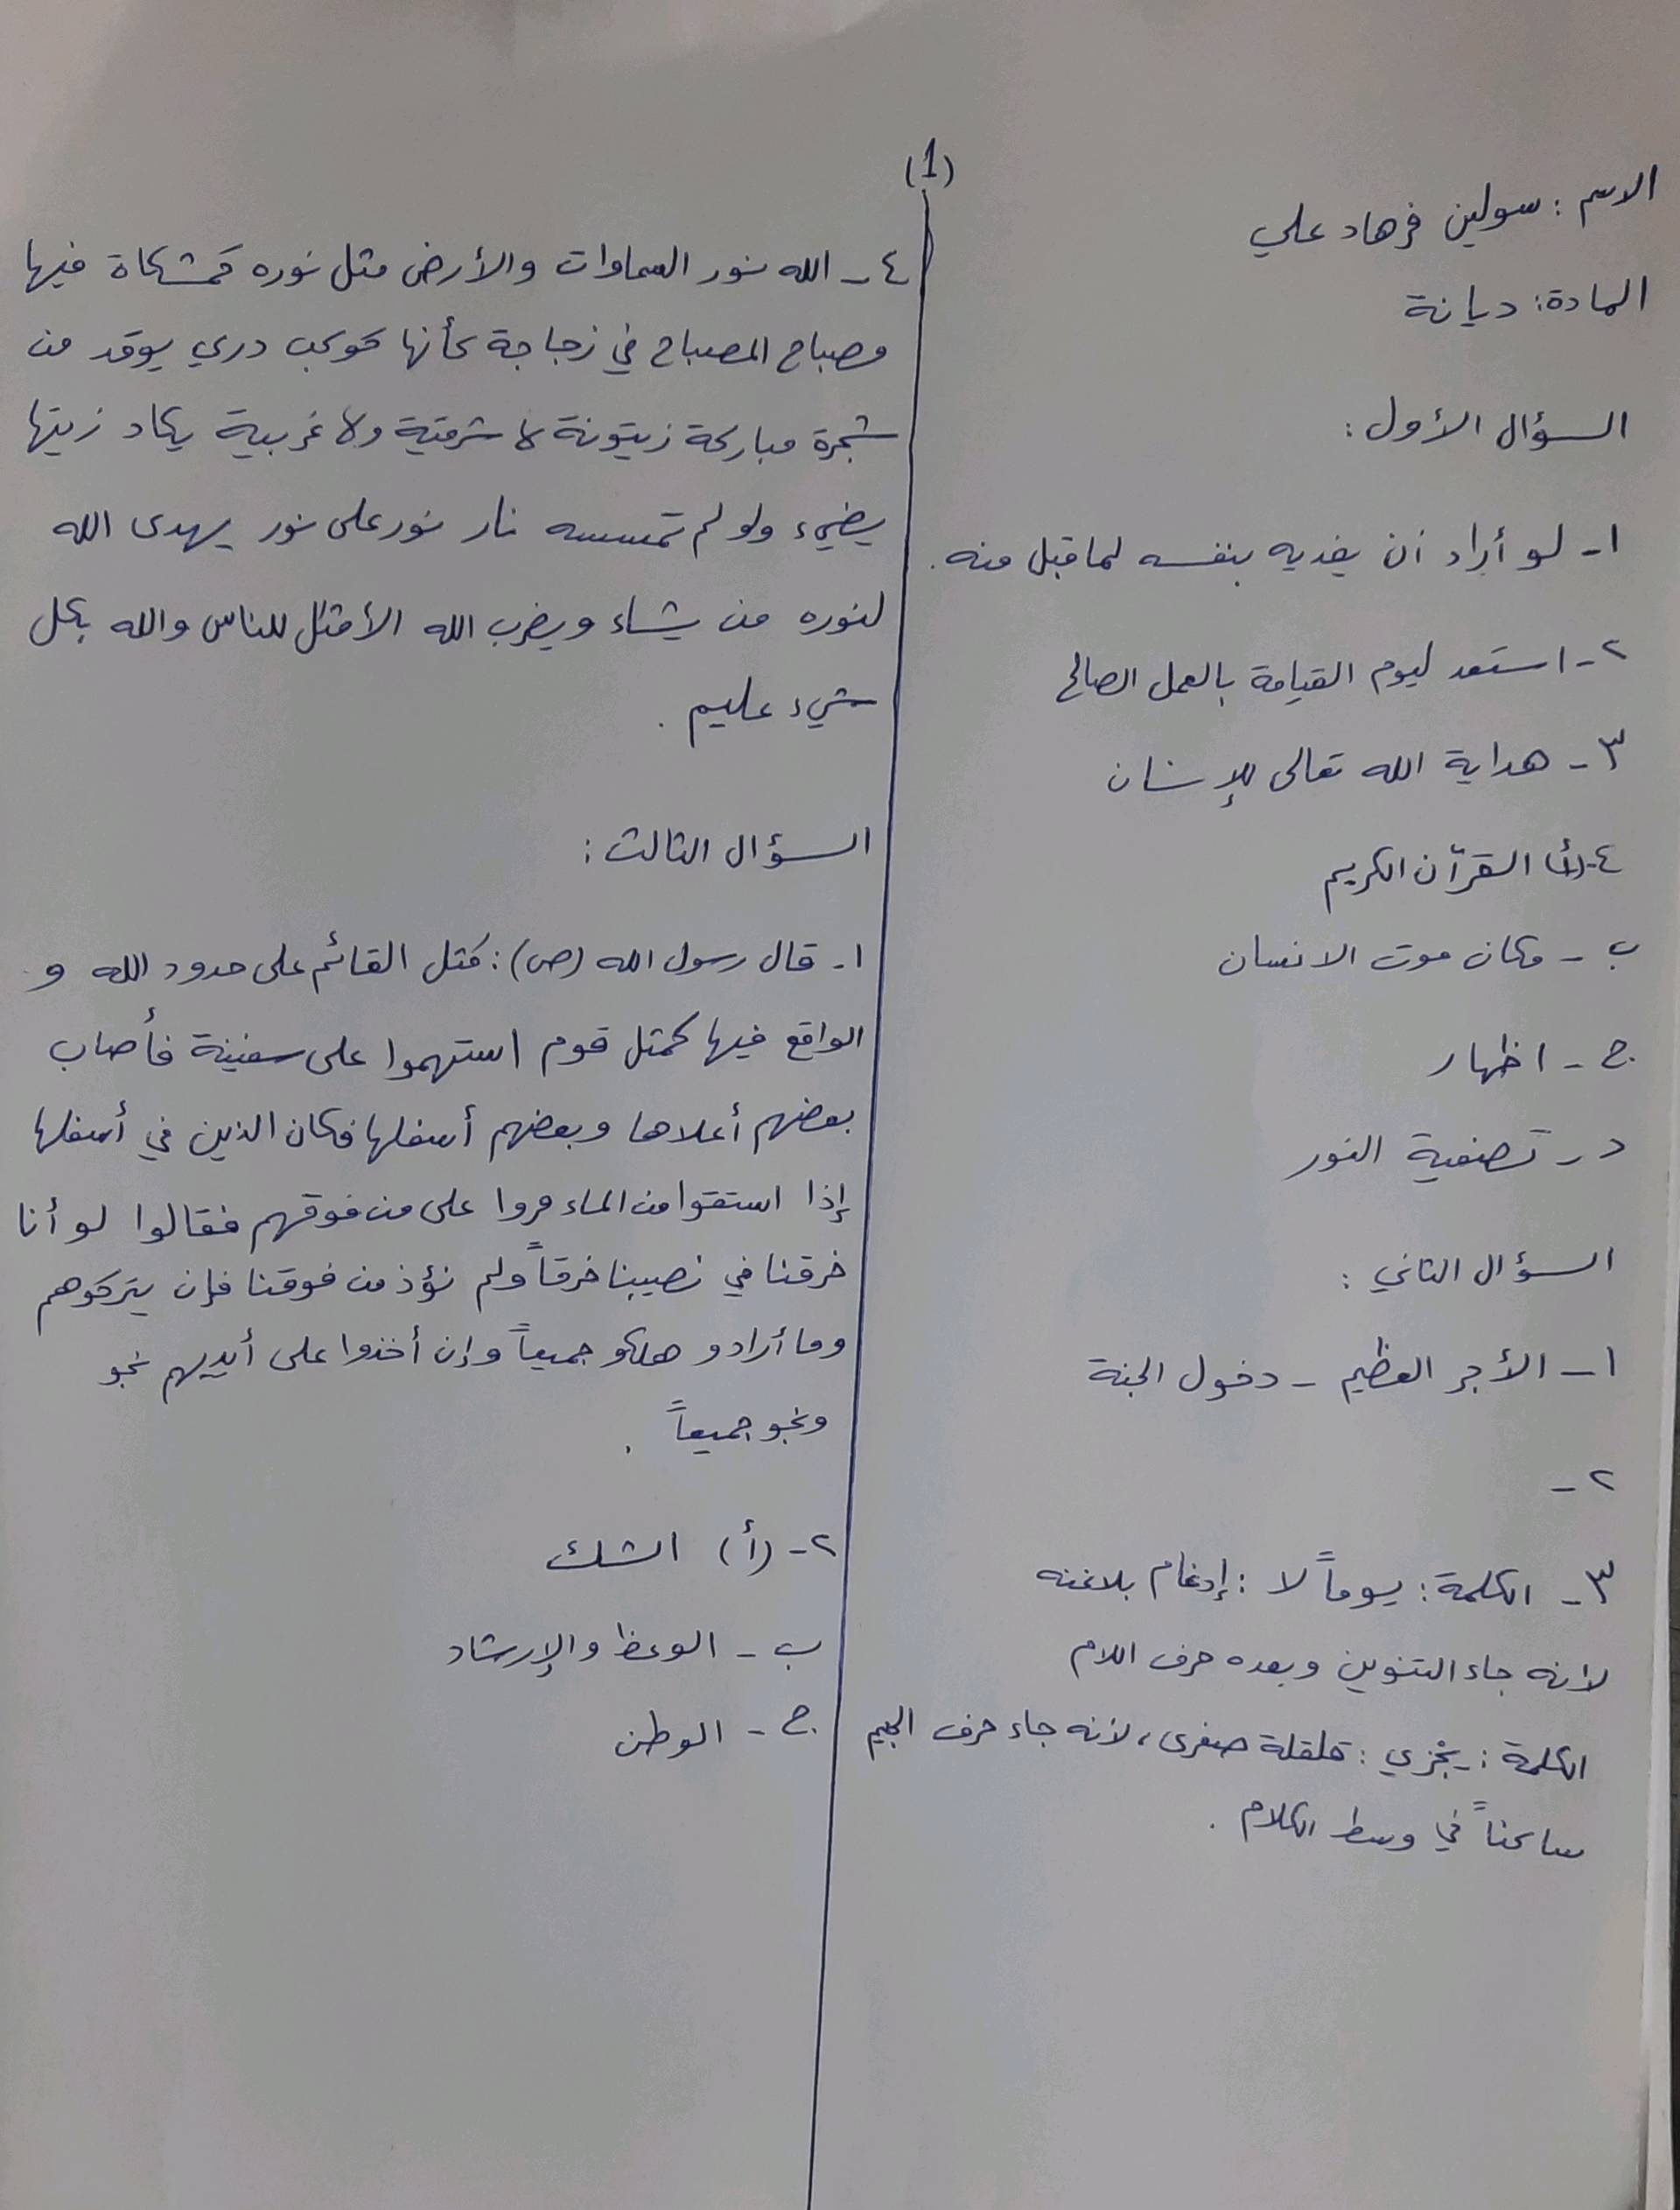 (1)
الاسم : سولين فرهاد علي
المادة: ديانة
السؤال الأول :
١- لو أراد أن يفديه بنفسه لما قبل منه .
٢- استعد ليوم القيامة بالعمل الصالح
٣- هداية الله تعالى للإنسان
٤-(أ) القرآن الكريم
ب - مكان موت الانسان
ج - اظهار
د - تصفية النور
السؤال الثاني :
١ - الأجر العظيم - دخول الجنة
٢ -
٣ - الكلمة : يوماً لا : إدغام بلاغنه
لانه جاء التنوين وبعده حرف اللام
الكلمة : يجْزي : قلقلة صغرى ، لأنه جاء حرف الجيم
ساكناً في وسط الكلام .
٤ - الله نور السماوات والأرض مثل نوره كمشكاة فيها
مصباح المصباح في زجاجة كأنها كوكب دري يوقد من
شجرة مباركة زيتونة لا شرقية ولا غربية يكاد زيتها
يضيء ولو لم تمسسه نار نور على نور يهدى الله
لنوره من يشاء ويضرب الله الأمثل للناس والله بكل
شيء عليم .
السؤال الثالث :
١- قال رسول الله (ص) : كمثل القائم على حدود الله و
الواقع فيها كمثل قوم استهموا على سفينة فأصاب
بعضهم أعلاها وبعضهم أسفلها فكان الذين في أسفلها
إذا استقوا من الماء مروا على من فوقهم فقالوا لو أنا
خرقنا في نصيبنا خرقاً ولم نؤذ من فوقنا فإن يتركوهم
وما أرادو هلكو جميعاً وإن أخذوا على أيديهم نجو
ونجو جميعاً .
٢- (أ) الشك
ب - الوعظ والإرشاد
ج - الوطن